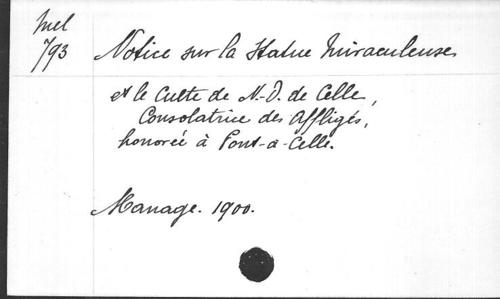 Mel
793
Notice sur la Statue Miraculeuse
et le Culte de N.-D. de Celle,
Consolatrice des Affligés,
honorée à Pont-à-Celle.
Manage. 1900.